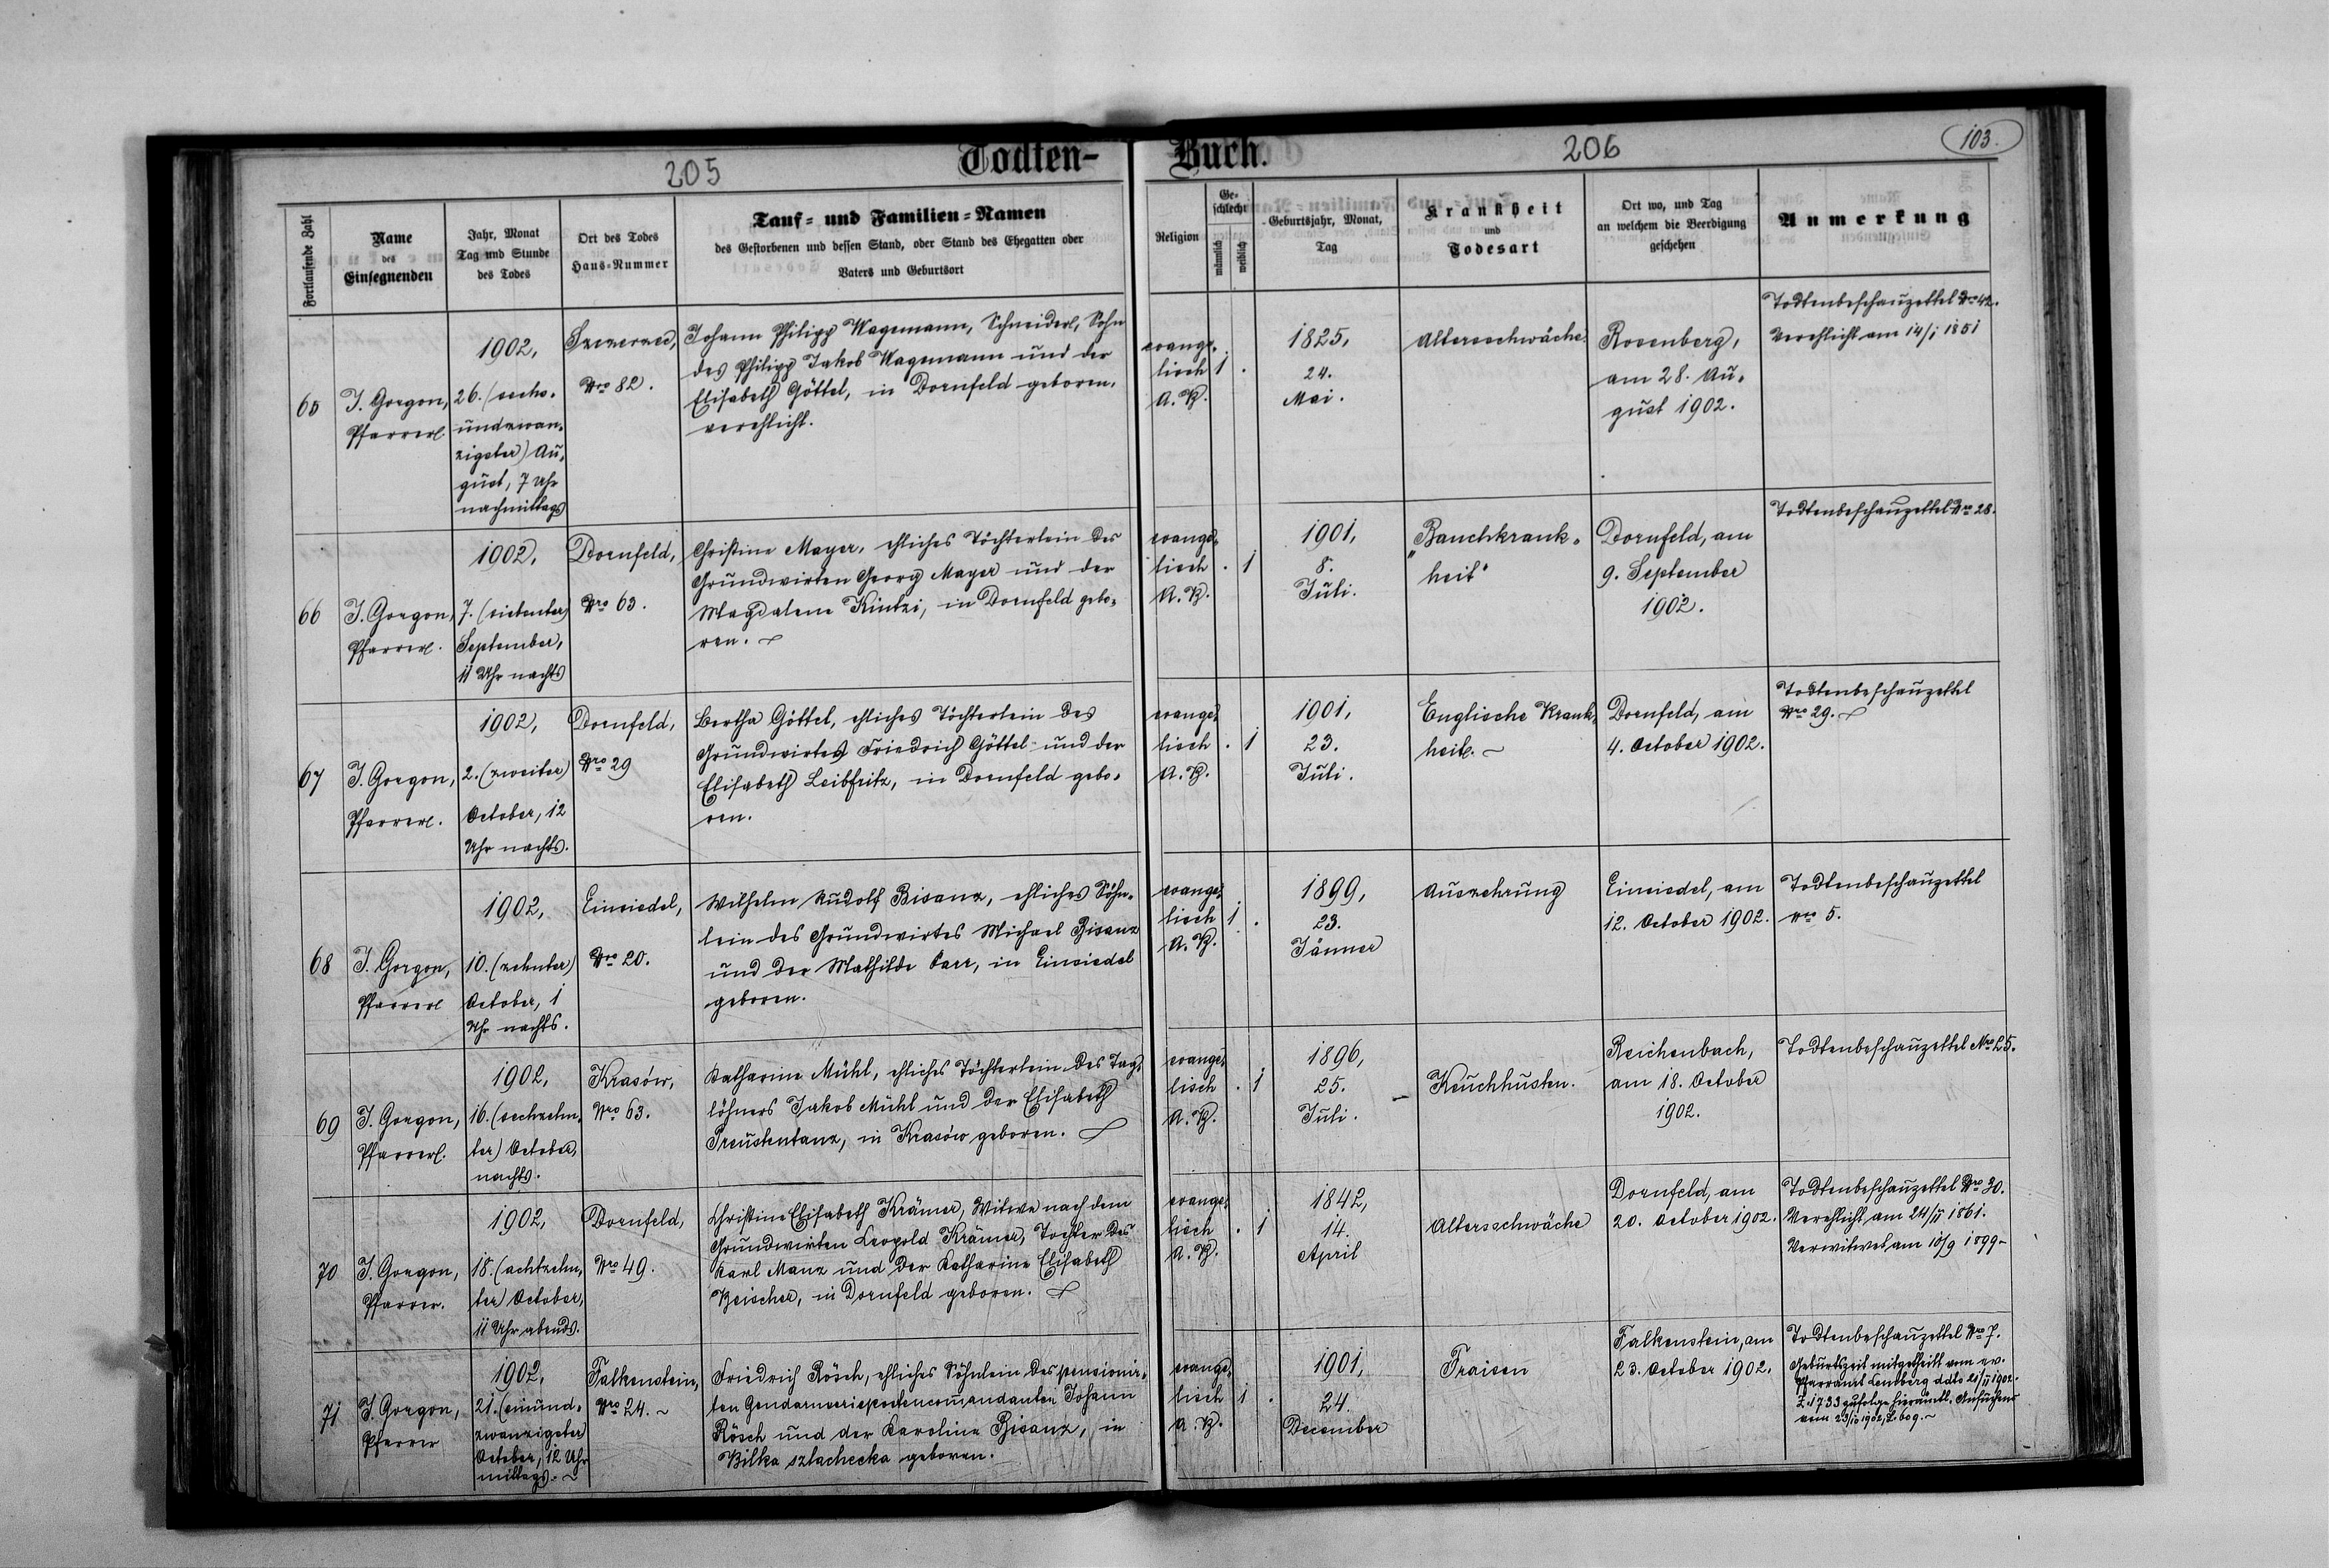 205
Todten-
Buch.
206
103.
Fortlaufende Zahl
Name
des
Einsegnenden
Jahr, Monat
Tag und Stunde
des Todes
Ort des Todes
Haus-Nummer
Tauf- und Familien-Namen
des Gestorbenen und dessen Stand, oder Stand des Ehegatten oder
Vaters und Geburtsort
Religion
Ge-
schlecht
männlich
weiblich
Geburtsjahr, Monat,
Tag
Krankheit
und
Todesart
Ort wo, und Tag
an welchem die Beerdigung
geschehen
Anmerkung
65
J. Gorgon,
Pfarrer
1902,
26. (sechs-
undzwan-
zigster) Au-
gust, 7 Uhr
nachmittags
Szczerzec,
Nro 82.
Johann Philipp Wagemann, Schneider, Sohn
des Philipp Jakob Wagemann und der
Elisabeth Göttel, in Dornfeld geboren.
verehlicht.
evange-
lisch
A. B.
1 .
1825,
24.
Mai.
Altersschwäche
Rosenberg,
am 28. Au-
gust 1902.
Todtenbeschauzettel Nro 42.
Verehlicht am 14/1 1851
66
J. Gorgon,
Pfarrer.
1902,
7. (siebenter)
September,
11 Uhr nachts
Dornfeld,
Nro 63.
Christine Mayer, ehliches Töchterlein des
Grundwirten Georg Mayer und der
Magdalene Kintzi, in Dornfeld gebo-
ren.
evange-
lisch
A. B.
. 1
1901,
8.
Juli.
"Bauchkrank-
heit"
Dornfeld, am
9. September
1902.
Todtenbeschauzettel Nro 28.
67
J. Gorgon,
Pfarrer.
1902,
2. (zweiter)
October, 12
Uhr nachts.
Dornfeld,
Nro 29
Bertha Göttel, ehliches Töchterlein des
Grundwirtes Friedrich Göttel und der
Elisabeth Leibfritz, in Dornfeld gebo-
ren.
evange-
lisch
A. B.
. 1
1901,
23.
Juli.
Englische Krank-
heit.
Dornfeld, am
4. October 1902.
Todtenbeschauzettel
Nro 29.
68
J. Gorgon,
Pfarrer
1902,
10. (zehnter)
October, 1
Uhr nachts.
Einsiedel,
Nro 20.
Wilhelm Rudolf Bisanz, ehliches Söhn-
lein des Grundwirtes Michael Bisanz
und der Mathilde Parr, in Einsiedel
geboren.
evange-
lisch
A. B.
1 .
1899,
23.
Jänner
Auszehrung
Einsiedel, am
12. October 1902.
Todtenbeschauzettel
Nro 5.
69
J. Gorgon,
Pfarrer.
1902,
16. (sechzehn-
ter) October,
nachts.
Krasów,
Nro 63.
Katharine Mühl, ehliches Töchterlein des Tag-
löhners Jakob Mühl und der Elisabeth
Preustentanz, in Krasów geboren.
evange-
lisch
A. B.
. 1
1896,
25.
Juli.
Keuchhusten.
Reichenbach,
am 18. October
1902.
Todtenbeschauzettel Nro 25.
70
J. Gorgon,
Pfarrer.
1902,
18. (achtzehn-
ter) October,
11 Uhr abends.
Dornfeld,
Nro 49.
Christine Elisabeth Krämer, Witwe nach dem
Grundwirten Leopold Krämer, Tochter des
Karl Manz und der Katharine Elisabeth
Beischer, in Dornfeld geboren.
evange-
lisch
A. B.
. 1
1842,
14.
April
Altersschwäche
Dornfeld, am
20. October 1902.
Todtenbeschauzettel Nro 30.
Verehlicht am 24/II 1861.
Verwitwet am 18/9 1899
71
J. Gorgon,
Pfarrer
1902,
21. (einund-
zwanzigster)
October, 12 Uhr
mittags.
Falkenstein,
Nro 24.
Friedrich Rösch, ehliches Söhnlein des pensionir-
ten Gendarmeriepostencommandanten Johann
Rösch und der Karoline Bisanz, in
Bilka szlachecka geboren.
evange-
lisch
A. B.
1 .
1901,
24.
December
Fraisen
Falkenstein, am
23. October 1902.
Todtenbeschauzettel Nro 7.
Geburtszeit mitgetheilt vom ev.
Pfarramt Lemberg ddto 21/II 1902.
Z. 1733 zufolge hierämtl. Ansuchens
vom 23/10 1902, Z. 609.